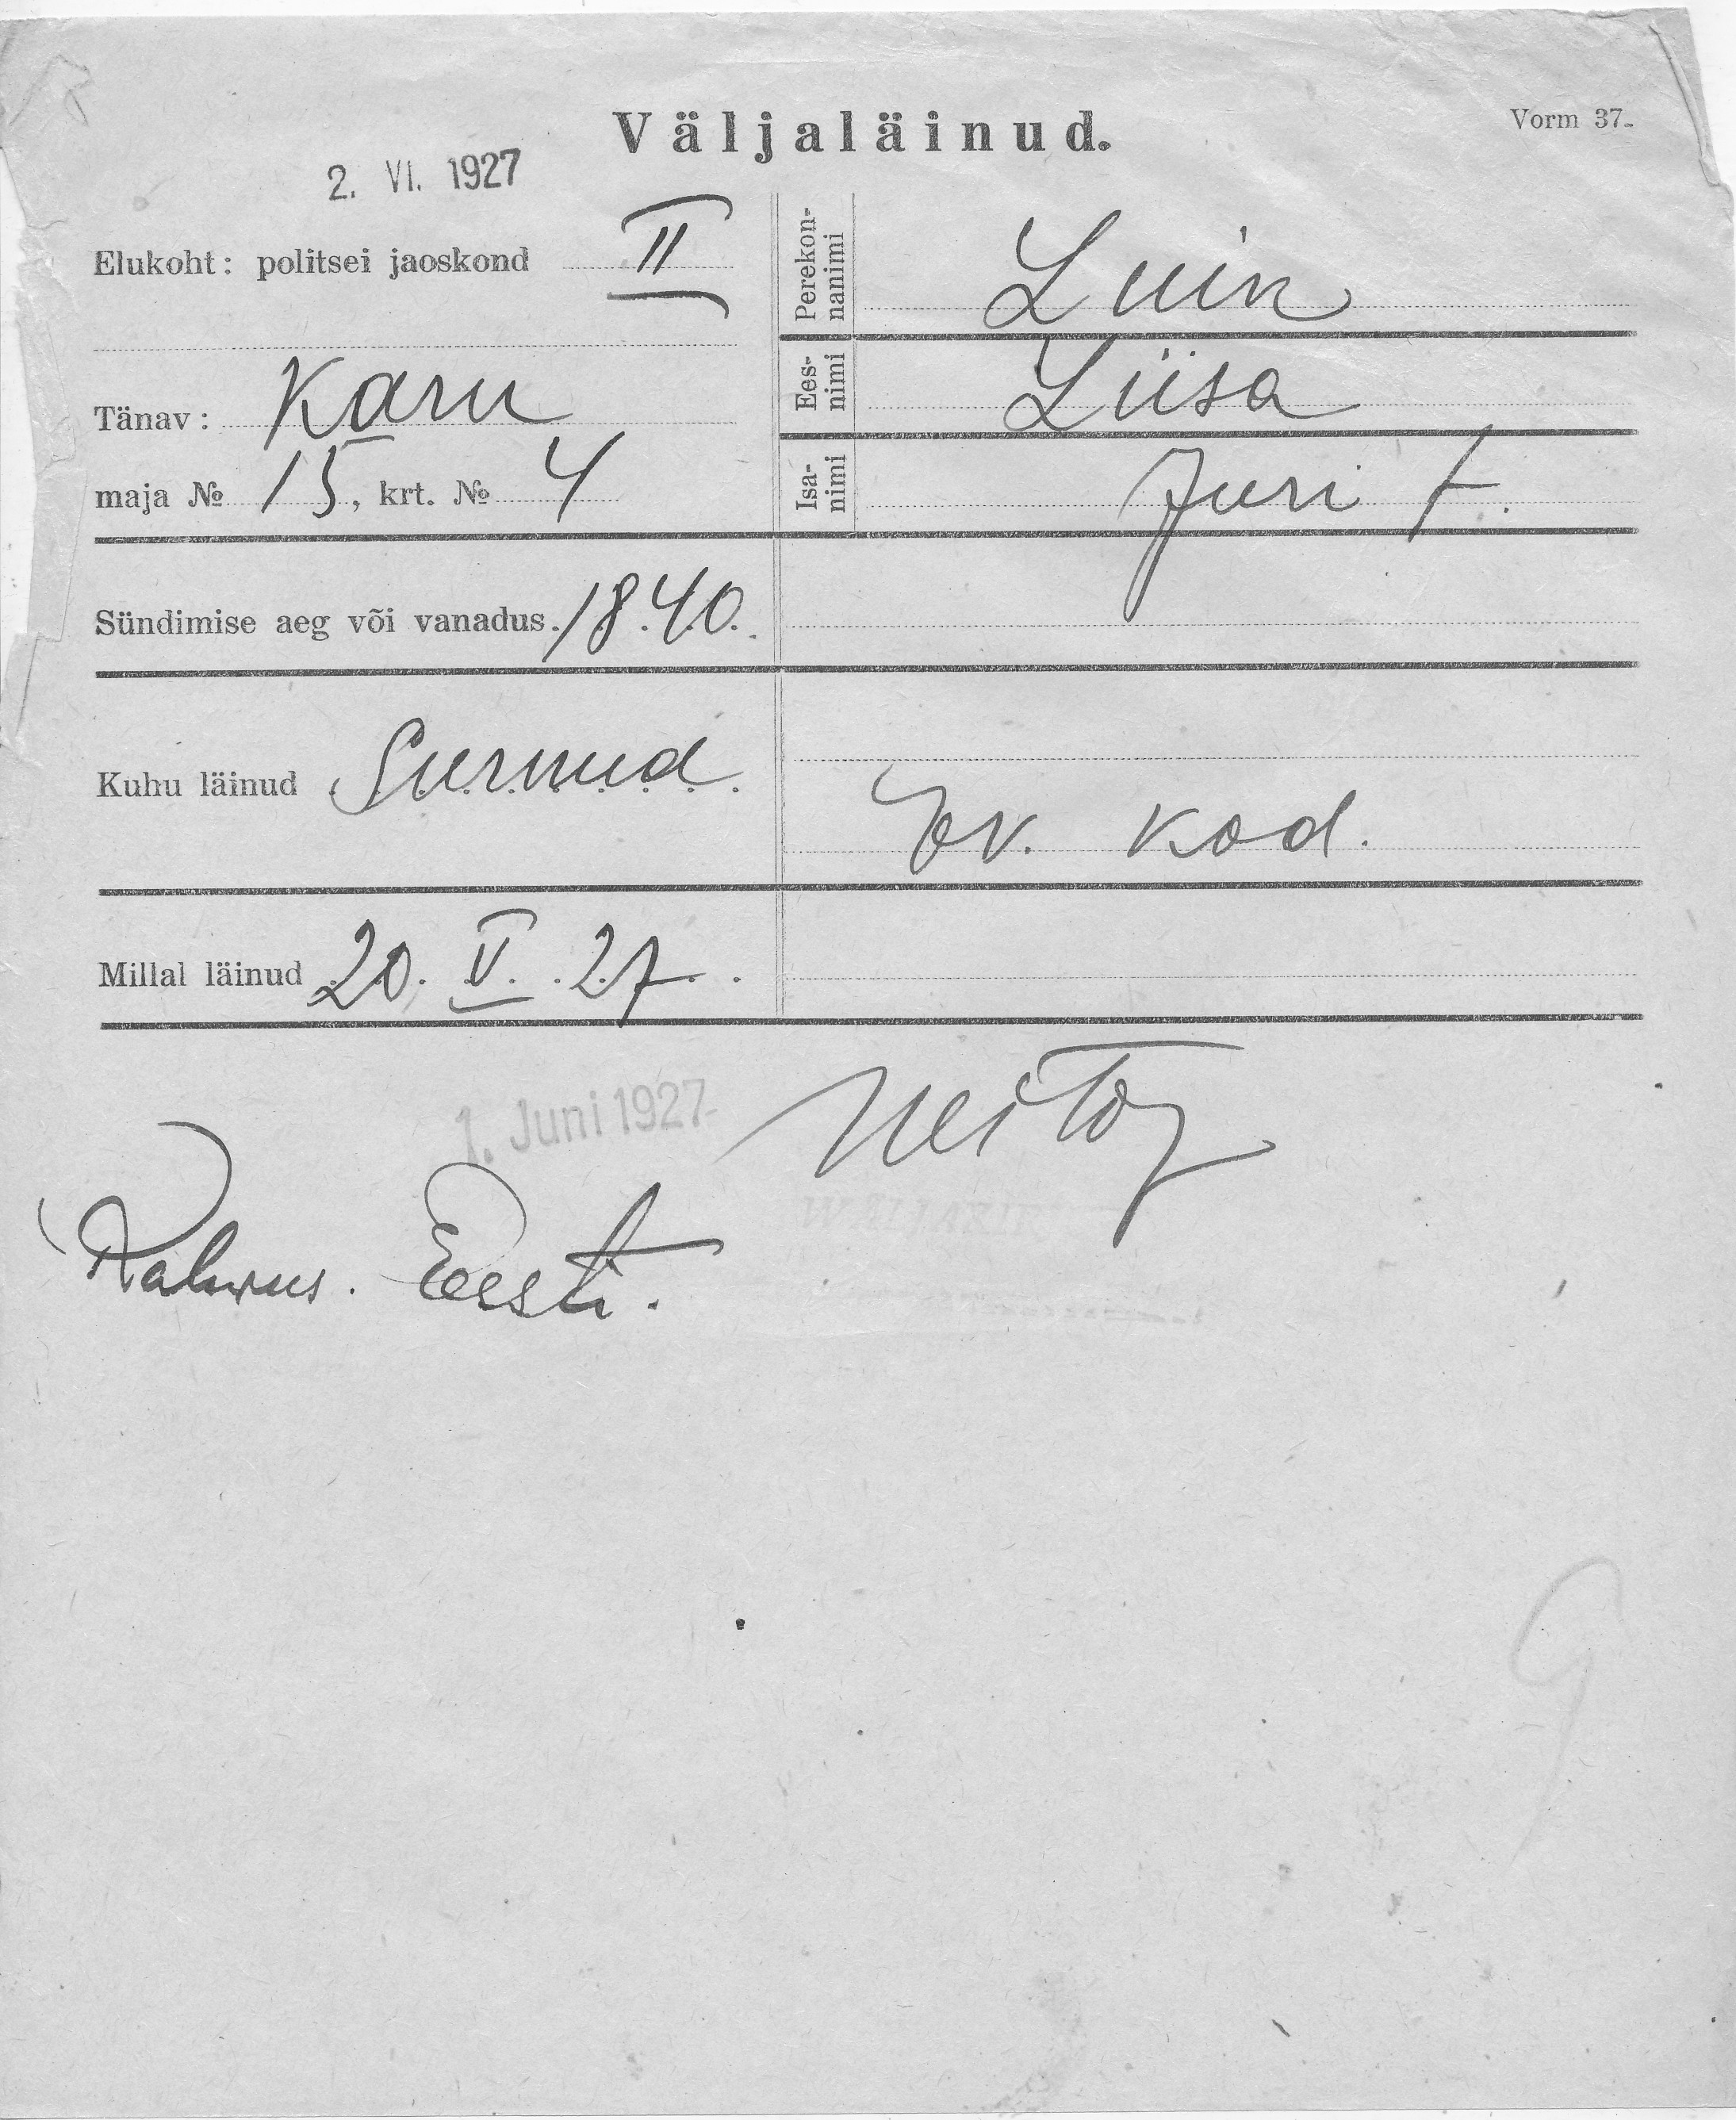 Väljaläinud.
Vorm 37.
2. VI. 1927
Elukoht: politsei jaoskond II
Tänav: Karu
maja № 15, krt. № 4
Perekon-
nanimi Luin
Ees-
nimi Liisa
Isa-
nimi Juri t.
Sündimise aeg või vanadus 1840.
Kuhu läinud Surnud.
Ev. kod.
Millal läinud 20. V. 27.
1. Juni 1927
Rahwus. Eesti.